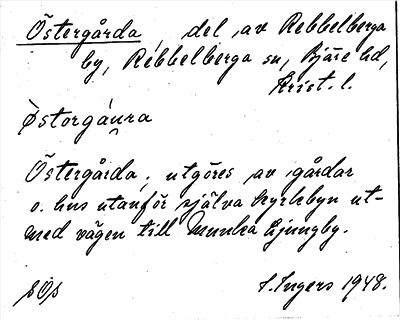 Östergårda, del av Rebbelberga
by, Rebbelberga sn, Bjäre hd,
Krist. l.
Østorgáu̯ra
Östergårda, utgöres av gårdar
o. hus utanför själva kyrkbyn ut-
med vägen till Munka Ljungby.
I. Ingers 1948.